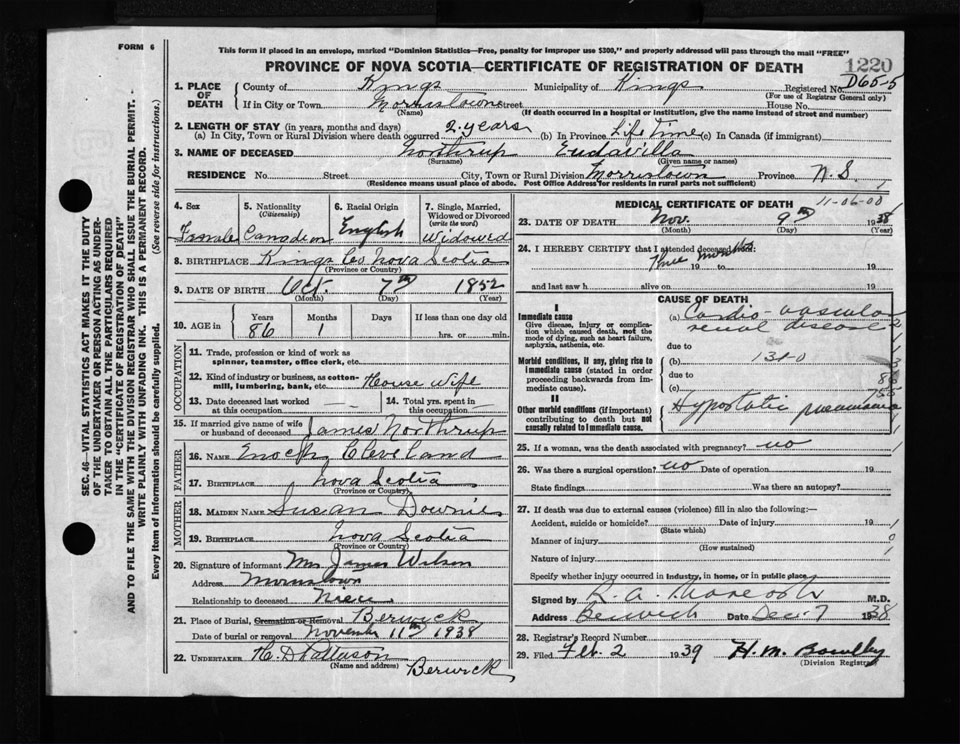 FORM 6
This form if placed in an envelope, marked "Dominion Statistics—Free, penalty for improper use $300," and properly addressed will pass through the mail "FREE"
PROVINCE OF NOVA SCOTIA—CERTIFICATE OF REGISTRATION OF DEATH
1220
1. PLACE OF DEATH County of Kings Municipality of Kings Registered No. D65-5
(For use of Registrar General only)
If in City or Town Morristown Street House No.
(Name) (If death occurred in a hospital or institution, give the name instead of street and number)
2. LENGTH OF STAY (in years, months and days)
(a) In City, Town or Rural Division where death occurred 2 years (b) In Province Life Time (c) In Canada (if immigrant)
3. NAME OF DECEASED Northrup Eudavilla
(Surname) (Given name or names)
RESIDENCE No. Street City, Town or Rural Division Morristown Province N.S.
(Residence means usual place of abode. Post Office Address for residents in rural parts not sufficient)
4. Sex 5. Nationality (Citizenship) 6. Racial Origin 7. Single, Married, Widowed or Divorced (write the word)
Female Canadian English Widowed
8. BIRTHPLACE Kings Co Nova Scotia
(Province or Country)
9. DATE OF BIRTH Oct. 7th 1852
(Month) (Day) (Year)
10. AGE in Years Months Days If less than one day
86 1 hrs. or min.
OCCUPATION
11. Trade, profession or kind of work as spinner, teamster, office clerk, etc.
12. Kind of industry or business, as cotton-mill, lumbering, bank, etc. House Wife
13. Date deceased last worked at this occupation — 14. Total yrs. spent in this occupation —
15. If married give name of wife or husband of deceased James Northrup
FATHER
16. NAME Enoch Cleveland
17. BIRTHPLACE Nova Scotia
(Province or Country)
MOTHER
18. MAIDEN NAME Susan Downie
19. BIRTHPLACE Nova Scotia
(Province or Country)
20. Signature of informant Mrs James Wilson
Address Morristown
Relationship to deceased Niece
21. Place of Burial, Cremation or Removal Berwick
Date of burial or removal November 11th 1938
22. UNDERTAKER
(Name and address) Berwick
MEDICAL CERTIFICATE OF DEATH
11-06-00
23. DATE OF DEATH Nov. 9th 1938
(Month) (Day) (Year)
24. I HEREBY CERTIFY that I attended deceased from:
Three months
19 to 19
and last saw h alive on 19
CAUSE OF DEATH
I
Immediate cause
Give disease, injury or complication which caused death, not the mode of dying, such as heart failure, asphyxia, asthenia, etc.
(a) Cardio-vascular renal disease
due to
Morbid conditions, if any, giving rise to immediate cause (stated in order proceeding backwards from immediate cause).
(b) 131-0
due to
(c)
II
Other morbid conditions (if important) contributing to death but not causally related to immediate cause.
Hypostatic pneumonia
25. If a woman, was the death associated with pregnancy? no
26. Was there a surgical operation? no Date of operation 19
State findings Was there an autopsy?
27. If death was due to external causes (violence) fill in also the following:—
Accident, suicide or homicide? Date of injury 19
(State which)
Manner of injury
(How sustained)
Nature of injury
Specify whether injury occurred in industry, in home, or in public place
Signed by R. A. M.D.
Address Berwick Date Dec. 7 1938
28. Registrar's Record Number
29. Filed Feb. 2 1939 H. M.
(Division Registrar)
SEC. 46—VITAL STATISTICS ACT MAKES IT THE DUTY
OF THE UNDERTAKER OR PERSON ACTING AS UNDER-
TAKER TO OBTAIN ALL THE PARTICULARS REQUIRED
IN THE "CERTIFICATE OF REGISTRATION OF DEATH"
AND TO FILE THE SAME WITH THE DIVISION REGISTRAR WHO SHALL ISSUE THE BURIAL PERMIT.
WRITE PLAINLY WITH UNFADING INK. THIS IS A PERMANENT RECORD.
Every item of information should be carefully supplied. (See reverse side for instructions.)